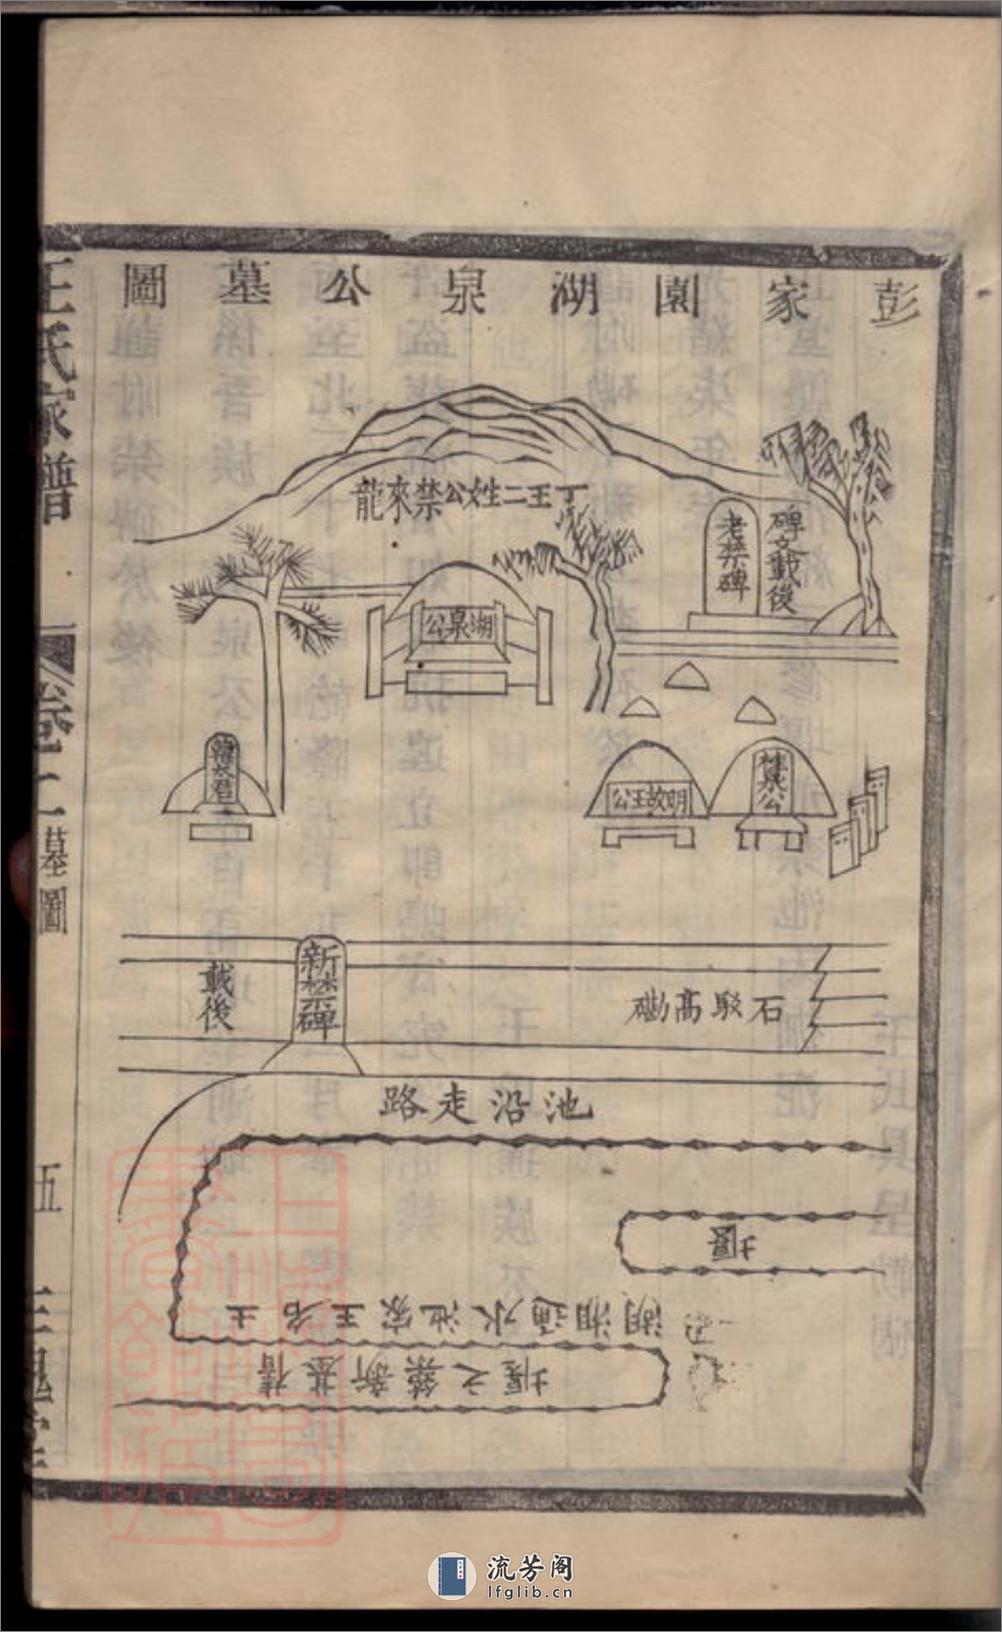 彭家園湖泉公墓圖
丁王二姓公禁來龍
老禁碑
碑文載後
湖泉公
明故王公
樊公
新禁碑
載後
石駁高磡
池沿走路
湖湘通水池家王名土
之築新基舊
王氏家譜
卷二
墓圖
伍
三槐堂
流芳阁
lfglib.cn